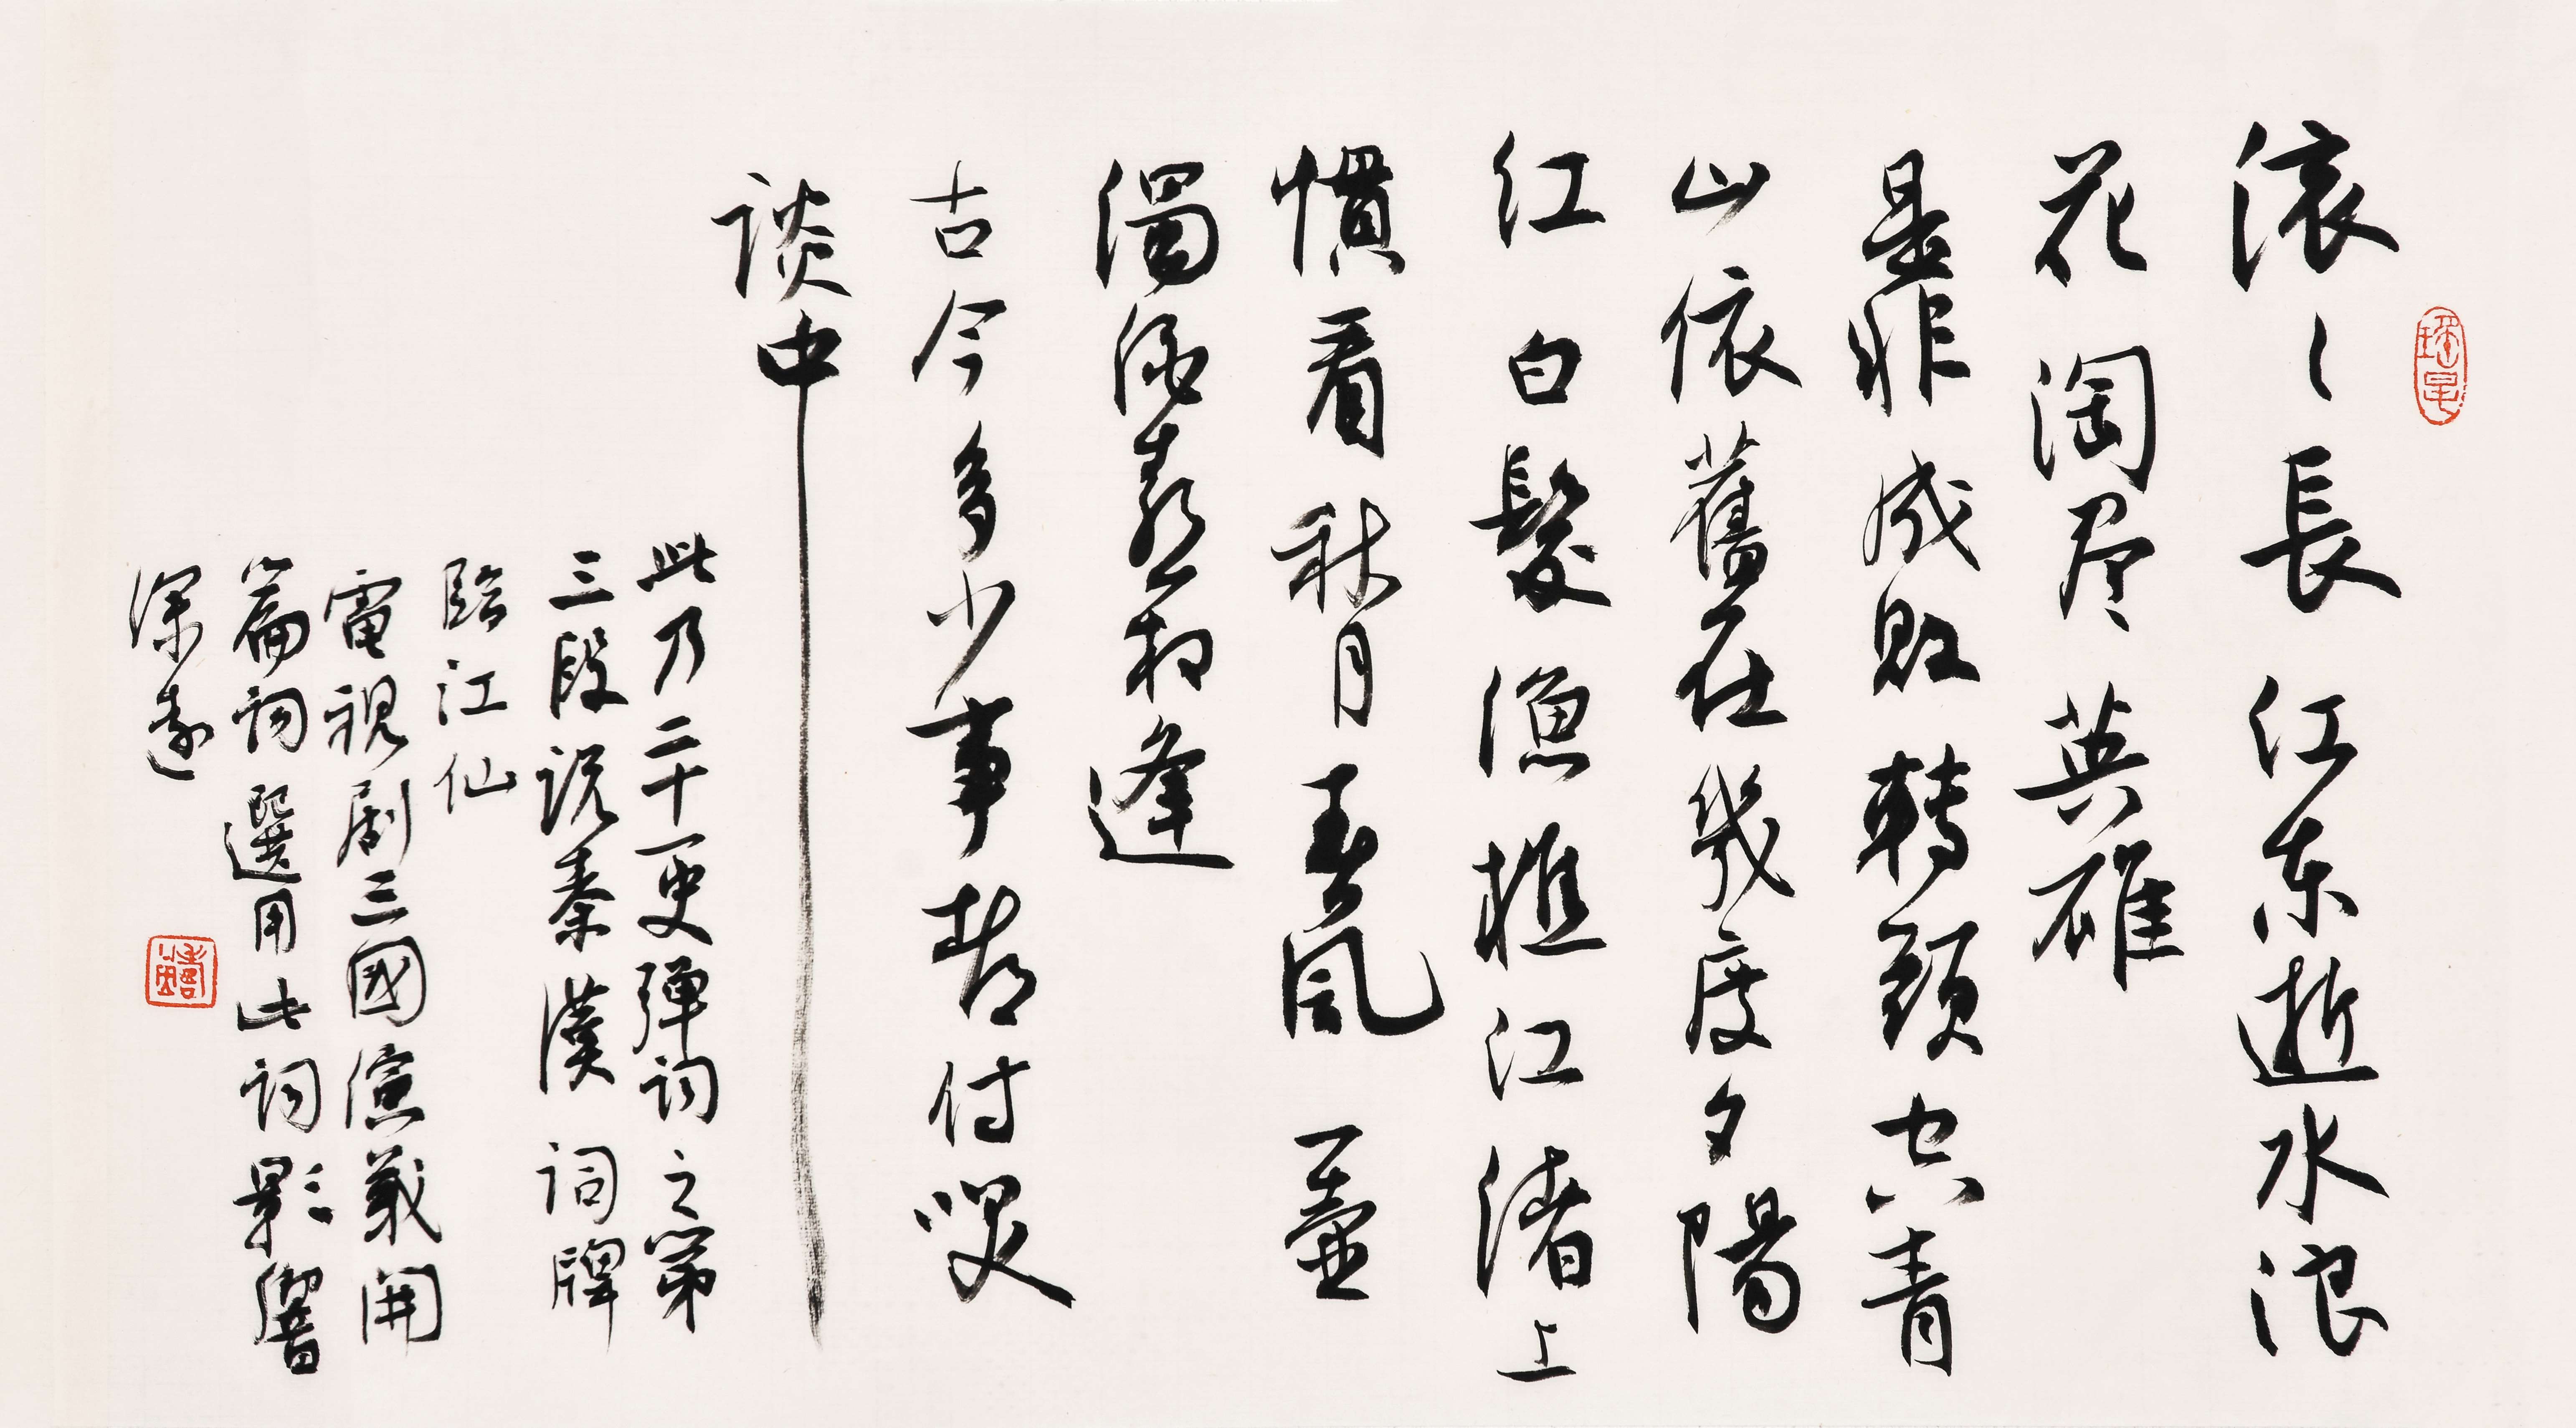 滚〻長江东逝水浪
花淘尽英雄
是非成敗轉頭空青
山依舊在幾度夕陽
红白髮漁樵江渚上
慣看秋月春風一壷
濁酒喜相逢
古今多少事都付笑
談中
此乃二十一史弹词之第
三段说秦漢詞牌
臨江仙
電視剧三國演義開
篇词選用此词影響
深遠